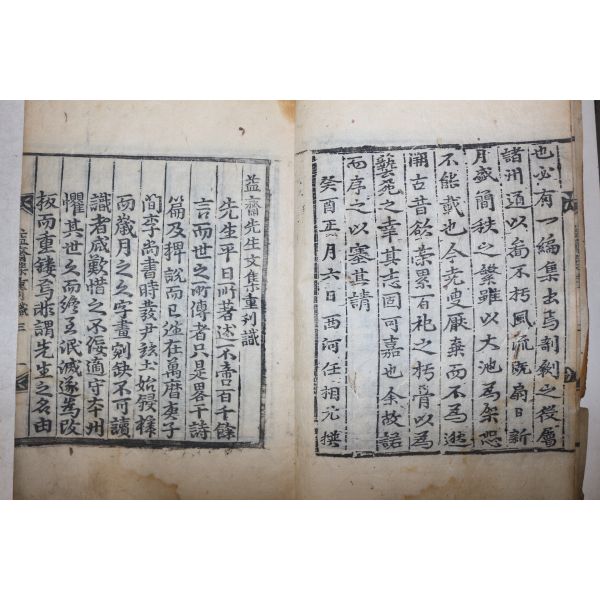 也必有一編集出焉剞劂之從屬
諸州道以啚不朽風流旣扇日新
月盛簡秩之繁雖以大池爲架恐
不能載也今老叟厭棄而不爲遊
溯古昔欲柰累百祀之朽骨以爲
斃死之幸其志固可嘉也余故詔
而序之以塞其請
癸酉正月六日西河任相元撰
益齋先生文集重刻識
先生平日所著述不啻百千餘
言而世之所傳者只是畧干詩
篇及稗說而已逬在萬曆庚子
間李尙書時發尹玆土始鋟榟
而歲月之久字畫刓缺不可讀
識者咸歎惜之不佞適守本州
懼其世久而終至泯滅遂爲改
板而重鏤焉非謂先生之名由